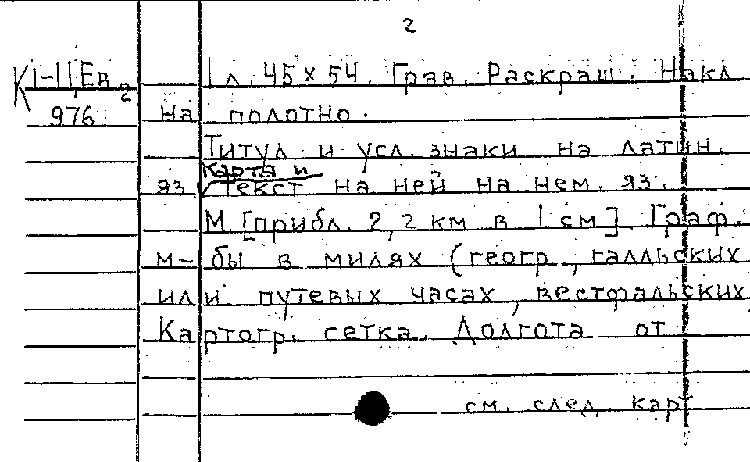 2
К 1-II Ев 2 1 л. 45 x 54. Грав. Раскраш. Накл.
976 на полотно.
Титул и усл. знаки на латин.
Карта и
яз. Текст на ней на нем. яз.
М [прибл. 2,2 км в 1 см]. Граф.
м-бы в милях (геогр., галльских
или путевых часах, вестфальских
Картогр. сетка. Долгота от
см. след. кар